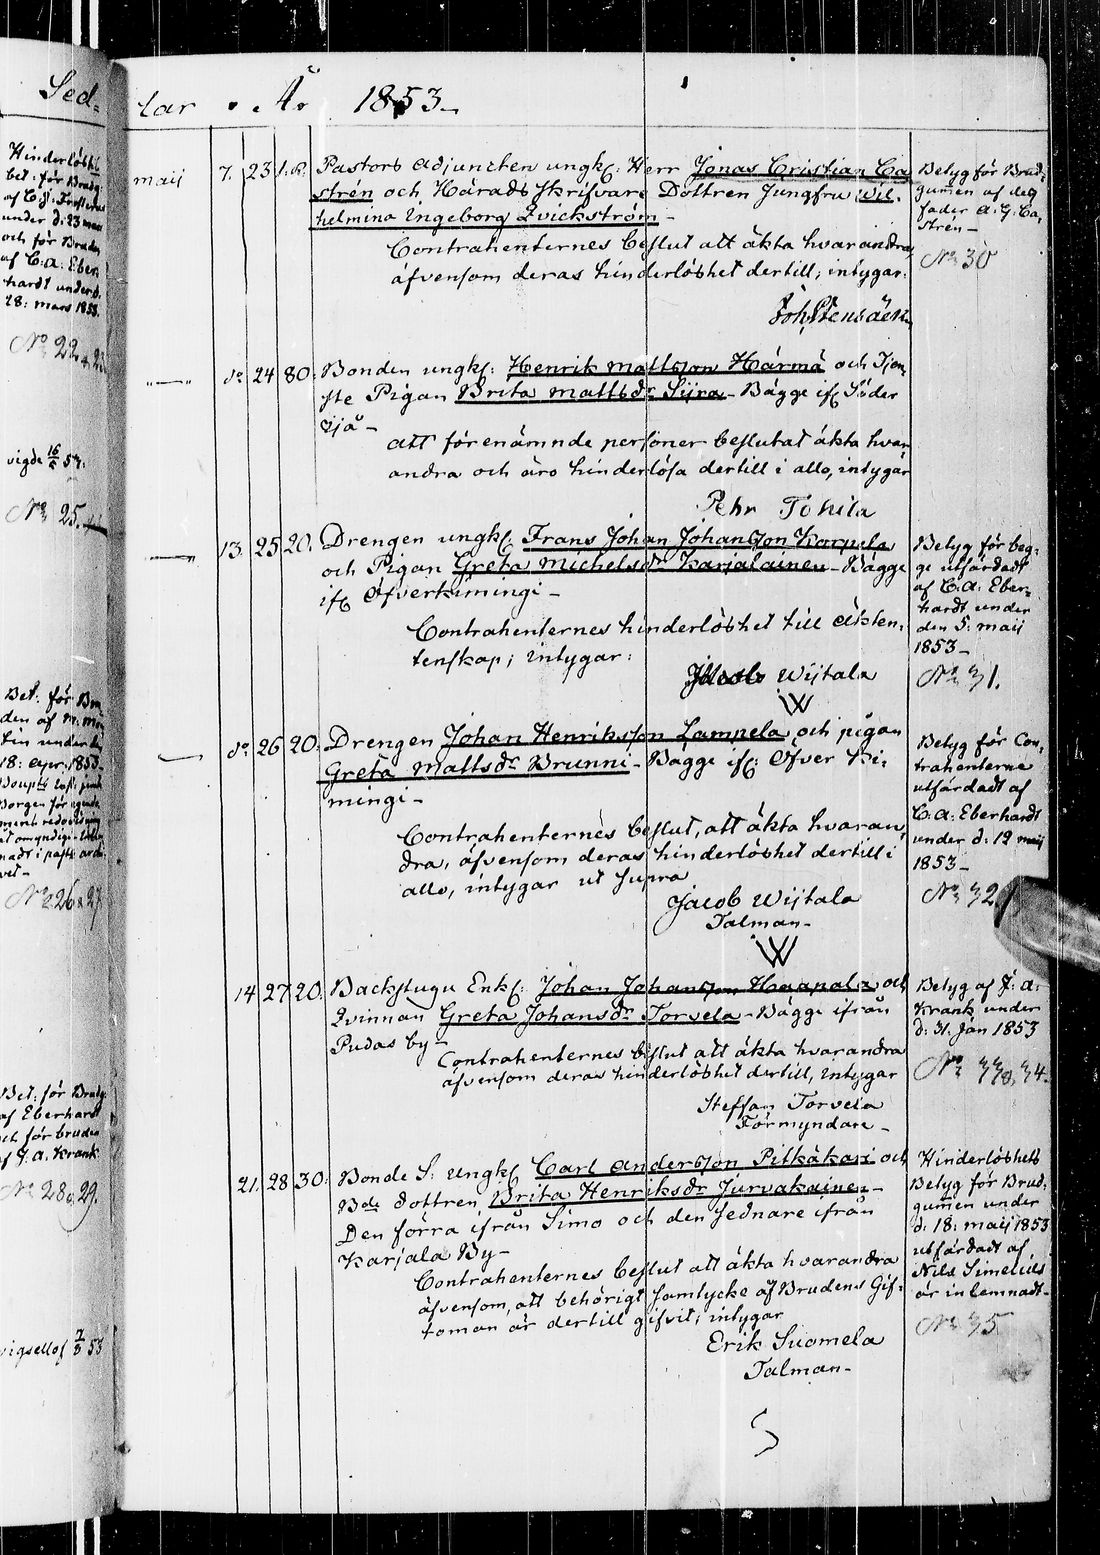 Sed=
Hinderlöshets
bet: för Brudg:
af C: J: Frosterus
under d: 23 mars
och för Bruden
af C: A: Eber,
hardt under d.
28: mars 1853.
No 22 & 23
vigde 16/5 53:
No 25.
Bet: för Bru
den af
tin under den
18: apr: 1853.
No 26 & 27
Bet: för Brudg
af Eberhardt
och för bruden
af J. A. Krank
No 28 & 29.
53
lar . År 1853.-
maij 7. 23 1. R. Pastors adjuncten ungk: Herr Jonas Cristian Ca
strén och Härads Skrifvare Dottren Jungfru Wil.
helmina Ingeborg Qvickström -
Contrahenternes beslut att äkta hvarandra,
äfvensom deras hinderlöshet dertill; intygar:
Joh Stensäen
Betyg för Brud=
gummen af des
fader A: G: Ca,
strén -
No 30
—"— do 24 80: Bonden ungk: Henrik Mattsson Härmä och Tjen,
ste Pigan Brita Mattsdr Siira - Bägge if: Söder
sjö -
att förenämnde personer beslutat äkta hvar
andra och äro hinderlösa dertill i allo, intygar
Pehr Tohila
—"— 13. 25 20. Drengen ungk: Frans Johan Johansson Korpela
och Pigan Greta Michelsdr Karjalainen - Bägge
if: Öfverkimingi -
Contrahenternes hinderlöshet till äkten,
tenskap; intygar:
Jacob Wijtala
W
Betyg för beg:
ge utfärdadt
af C: A: Eber=
hardt under
den 5: maij
1853 -
No 31.
do 26 20: Drengen Johan Henriksson Lampela och pigan
Greta Mattsdr Brunni - Bägge if: Öfver Ki-
mingi -
Contrahenternes beslut, att äkta hvaran,
dra, äfvensom deras hinderlöshet dertill i
allo, intygar ut supra
Jacob Wijtala
Talman -
W
Betyg för Con,
trahenterne
utfärdadt af
C: A: Eberhardt
under d: 12 maij
1853 -
No 32.
14 27 20. Backstugu Enk: Johan Johansson Haapala och
Qvinnan Greta Johansdr Torvela - Bägge ifrån
Pudas by -
Contrahenternes beslut att äkta hvarandra
äfvensom deras hinderlöshet dertill, intygar
Steffan Torvela
Förmyndare -
Betyg af J: A:
Krank under
d: 31. Jan 1853
No 33 & 34.
21. 28 30: Bonde S: ungk: Carl Andersson Pitkäkari och
Bde dottren Brita Henriksdr Jurvakainen -
Den förra ifrån Simo och den sednare ifrån
Karjala By -
Contrahenternes beslut att äkta hvarandra
äfvensom, att behörigt samtycke af Brudens Gif-
toman är dertill gifvit; intygar
Erik Suomela
Talman -
S
Hinderlöshets
Betyg för Brud,
gummen under
d: 18: maij 1853
utfärdadt af
Nils Simelius
är inlemnadt -
No 35